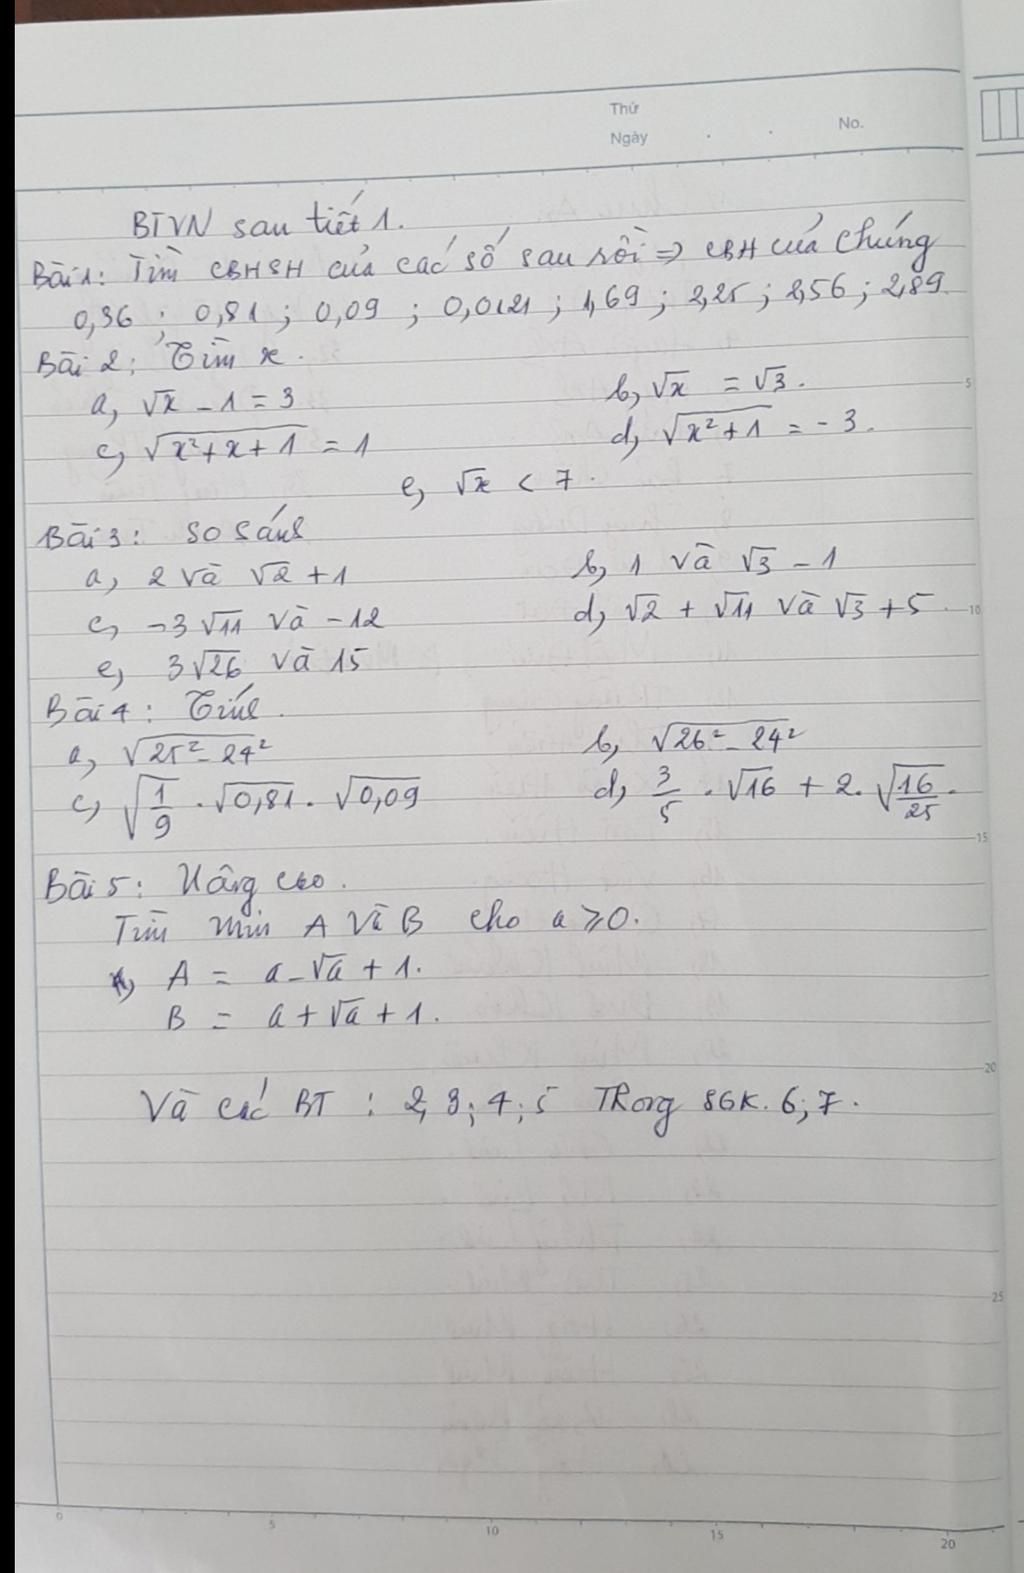 Thứ
Ngày . . No.
BTVN sau tiết 1.
Bài 1: Tìm CBHSH của các số sau rồi => CBH của chúng
0,36 ; 0,81 ; 0,09 ; 0,0121 ; 1,69 ; 2,25 ; 2,56 ; 2,89.
Bài 2: Tìm x.
a, √x - 1 = 3 b, √x = √3.
c, √(x²+x+1) = 1 d, √(x²+1) = -3.
e, √x < 7.
Bài 3: So sánh
a, 2 và √2 + 1 b, 1 và √3 - 1
c, -3√11 và -12 d, √2 + √11 và √3 + 5.
e, 3√26 và 15
Bài 4: Tính.
a, √(25² - 24²) b, √(26² - 24²)
c, √(1/9) . √0,81 . √0,09 d, 3/5 . √16 + 2. √(16/25).
Bài 5: Nâng cao.
Tìm min A và B cho a ≥ 0.
A = a - √a + 1.
B = a + √a + 1.
Và các BT : 2, 3; 4; 5 Trong SGK. 6; 7.
5
10
15
20
25
0 5 10 15 20